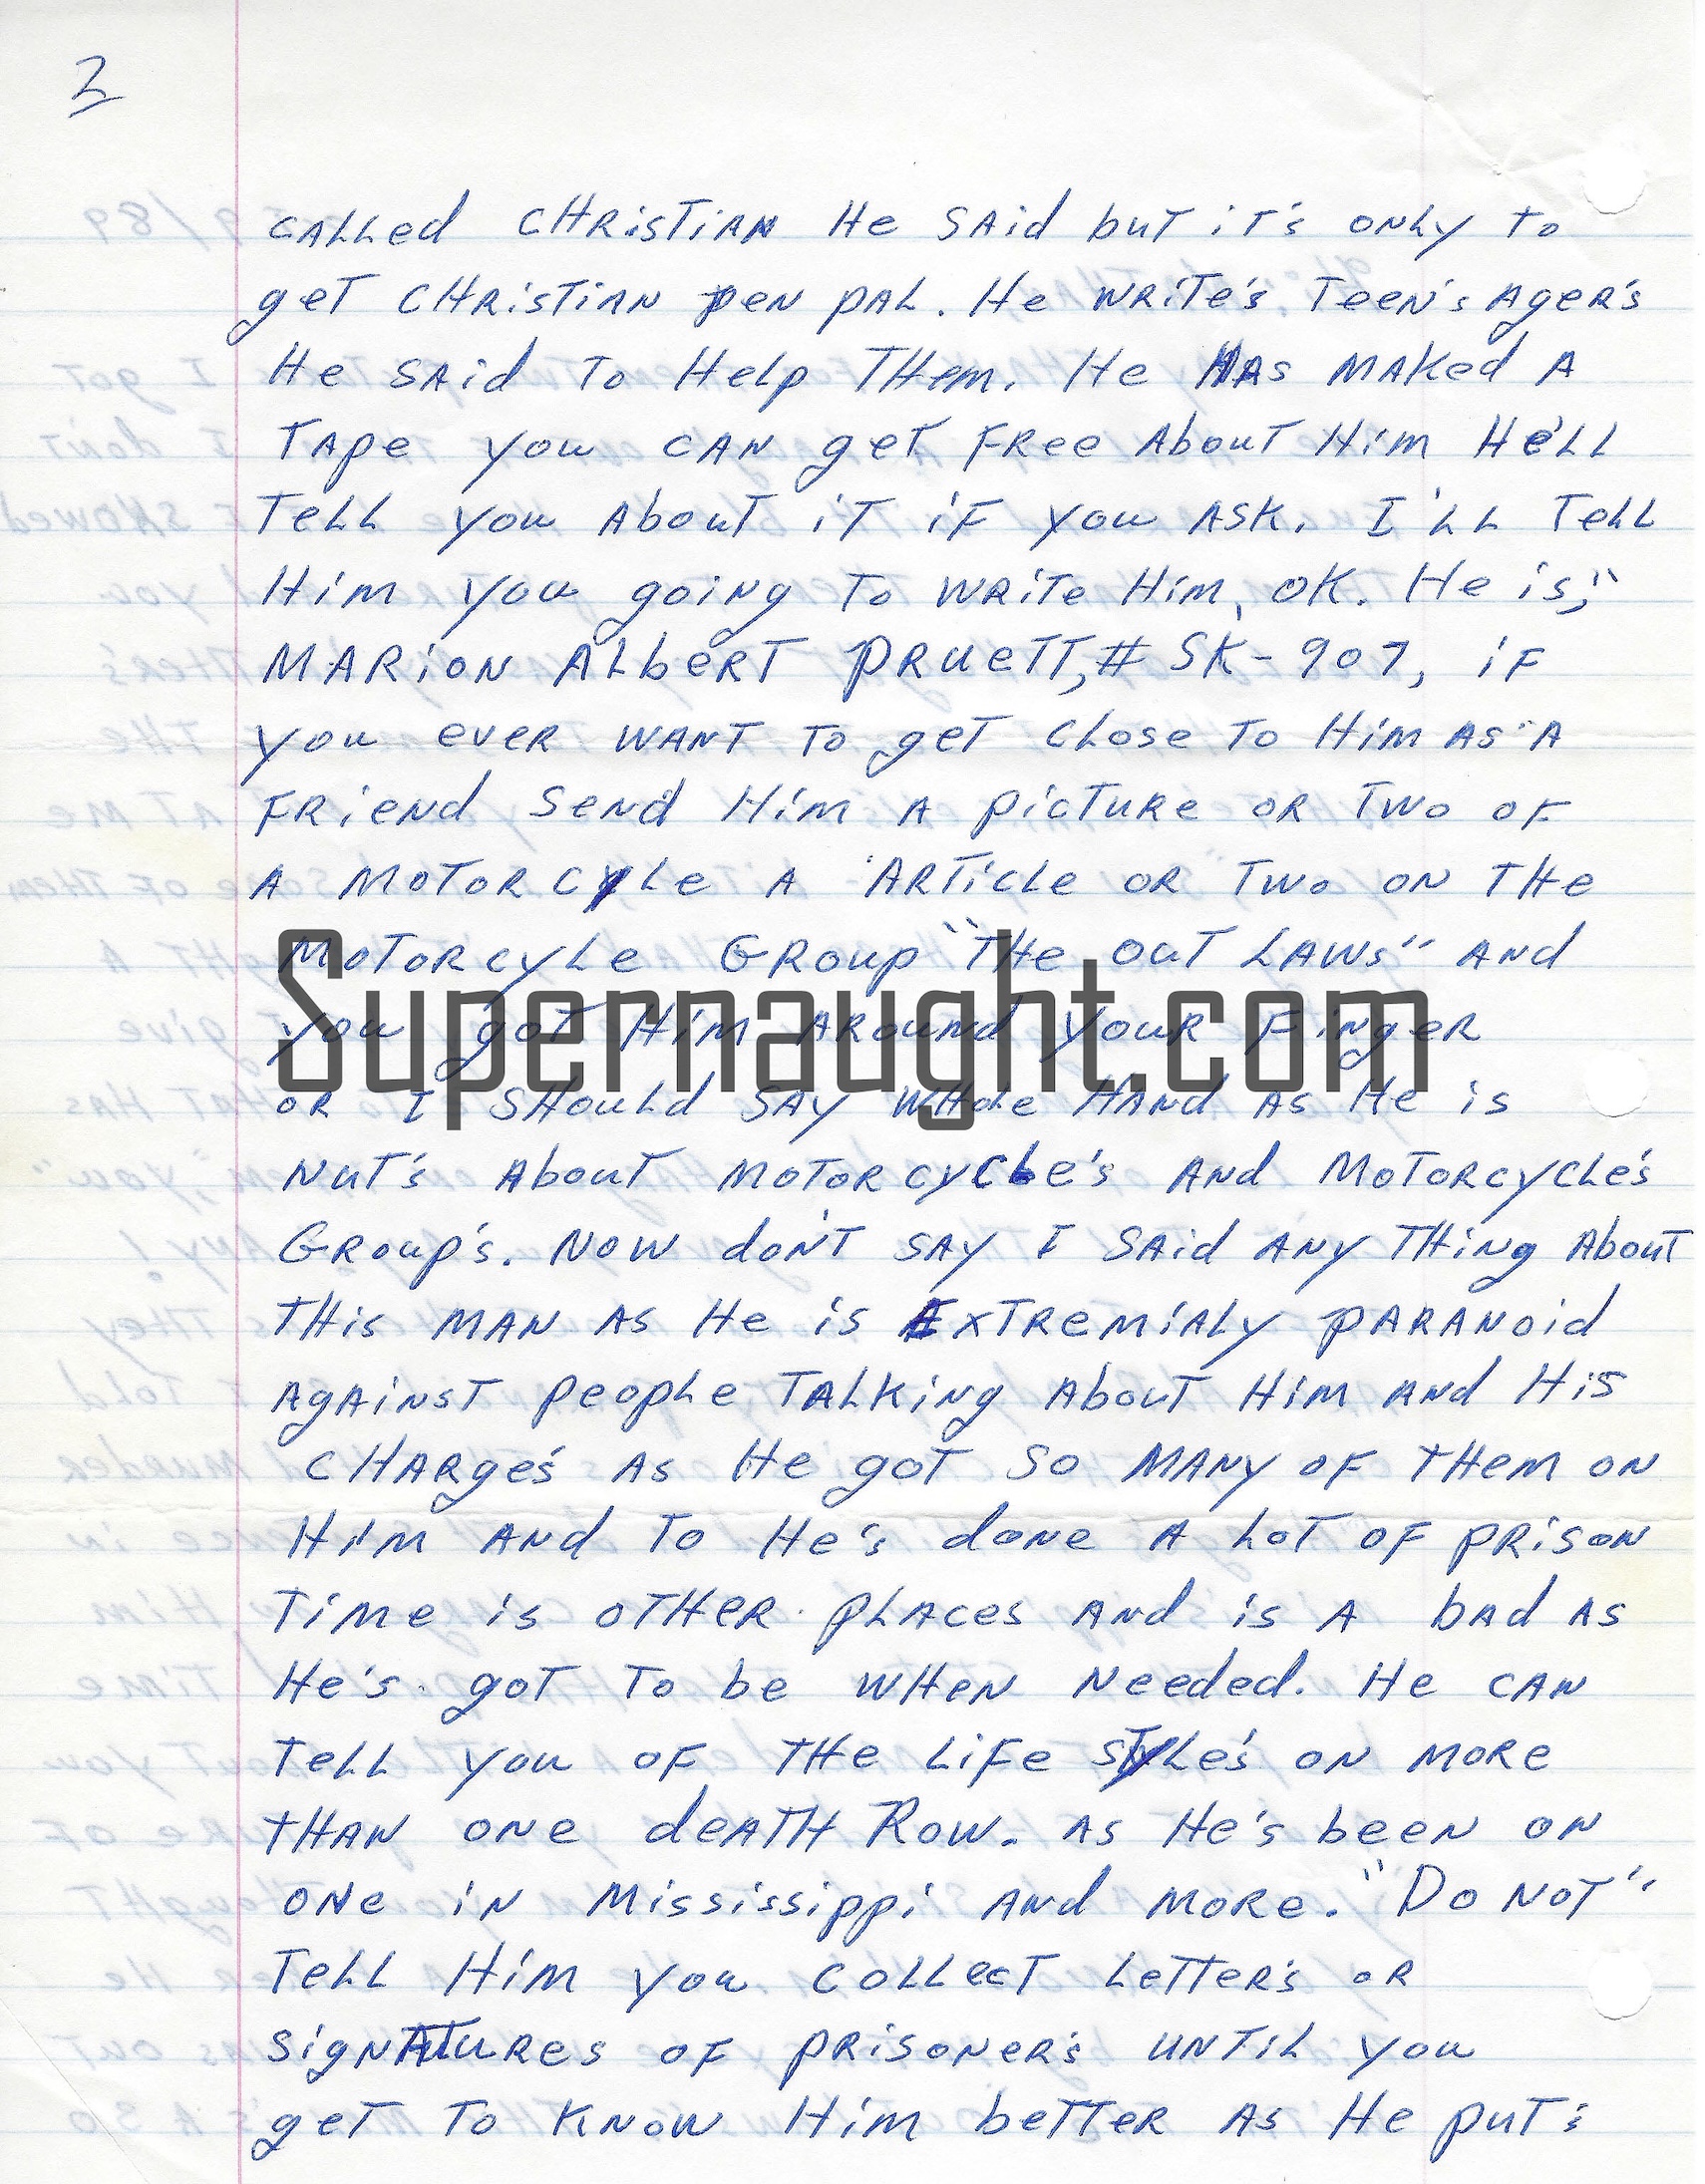 2
called Christian He said but it's only to
get Christian pen pal. He write's Teen's Ager's
He said to Help Them. He Has maked A
Tape you can get Free About Him He'll
Tell you About it if you Ask. I'll Tell
Him you going To write Him, ok. He is,"
Marion Albert Pruett, # SK-907, if
you ever want to get close to Him As A
Friend send Him A picture or two of
A Motorcycle A Article or Two on The
Motorcyle Group "The Out Laws" And
you got Him Around your Finger
or I should say whole Hand As He is
nut's About Motorcycle's And Motorcycle's
Group's. Now don't say I said Any Thing About
This man As He is Extremialy paranoid
Against people Talking About Him And His
charge's As He got so many of Them on
Him And To He's done A Lot of prison
Time is other places And is A bad As
He's got To be when needed. He can
Tell you of The Life style's on more
Than one death Row. As He's been on
one in Mississippi And more. "Do Not"
Tell Him you collect Letter's or
signatures of prisoner's until you
get To know Him better As He put's
Supernaught.com